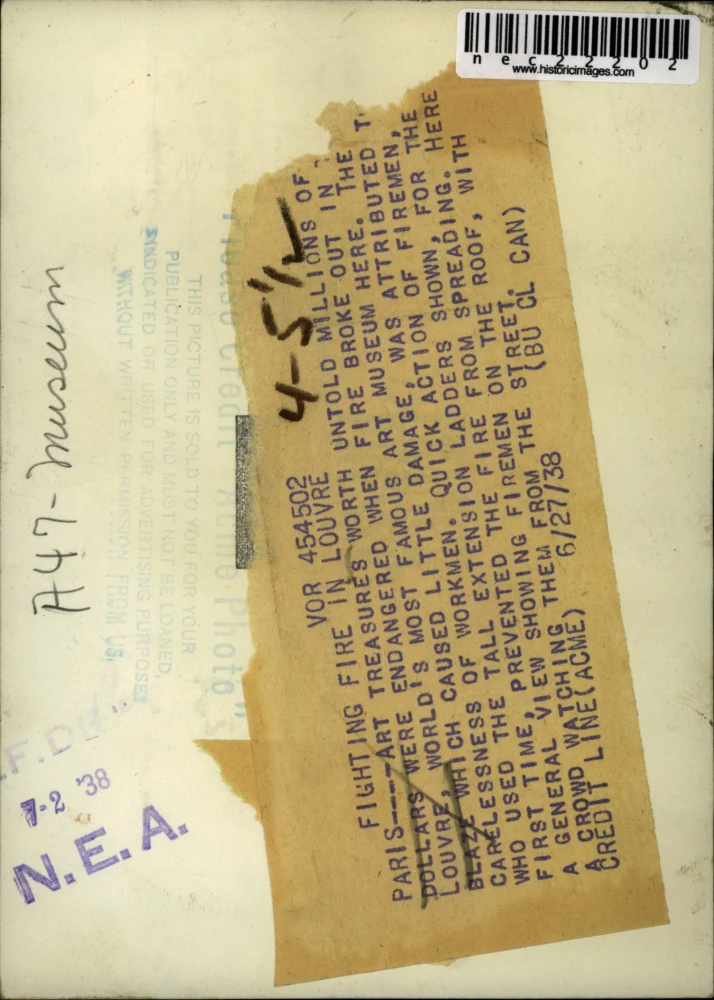 nec22202
www.historicimages.com
A47-Museum
THIS PICTURE IS SOLD TO YOU FOR YOUR
PUBLICATION ONLY AND MUST NOT BE LOANED,
SYNDICATED OR USED FOR ADVERTISING PURPOSES
WITHOUT WRITTEN PERMISSION FROM US.
Please Credit "Acme Photo"
4-5 1/2
VOR 454502
FIGHTING FIRE IN LOUVRE
PARIS----ART TREASURES WORTH UNTOLD MILLIONS OF
DOLLARS WERE ENDANGERED WHEN FIRE BROKE OUT IN
LOUVRE, WORLD'S MOST FAMOUS ART MUSEUM HERE. THE
BLAZE WHICH CAUSED LITTLE DAMAGE, WAS ATTRIBUTED T
CARELESSNESS OF WORKMEN. QUICK ACTION OF FIREMEN,
WHO USED THE TALL EXTENSION LADDERS SHOWN, FOR THE
FIRST TIME, PREVENTED THE FIRE FROM SPREADING. HERE
A GENERAL VIEW SHOWING FIREMEN ON THE ROOF, WITH
A CROWD WATCHING THEM FROM THE STREET.
CREDIT LINE(ACME) 6/27/38 (BU CL CAN)
7-2 '38
N.E.A.